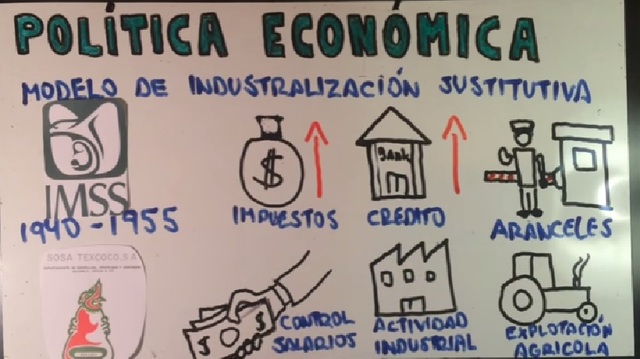 POLÍTICA ECONÓMICA
MODELO DE INDUSTRALIZACIÓN SUSTITUTIVA
IMSS
1940-1955
$
IMPUESTOS
BANK
CRÉDITO
ARANCELES
SOSA TEXCOCO, S.A
$ $
CONTROL
SALARIOS
ACTIVIDAD
INDUSTRIAL
EXPLOTACIÓN
AGRICOLA